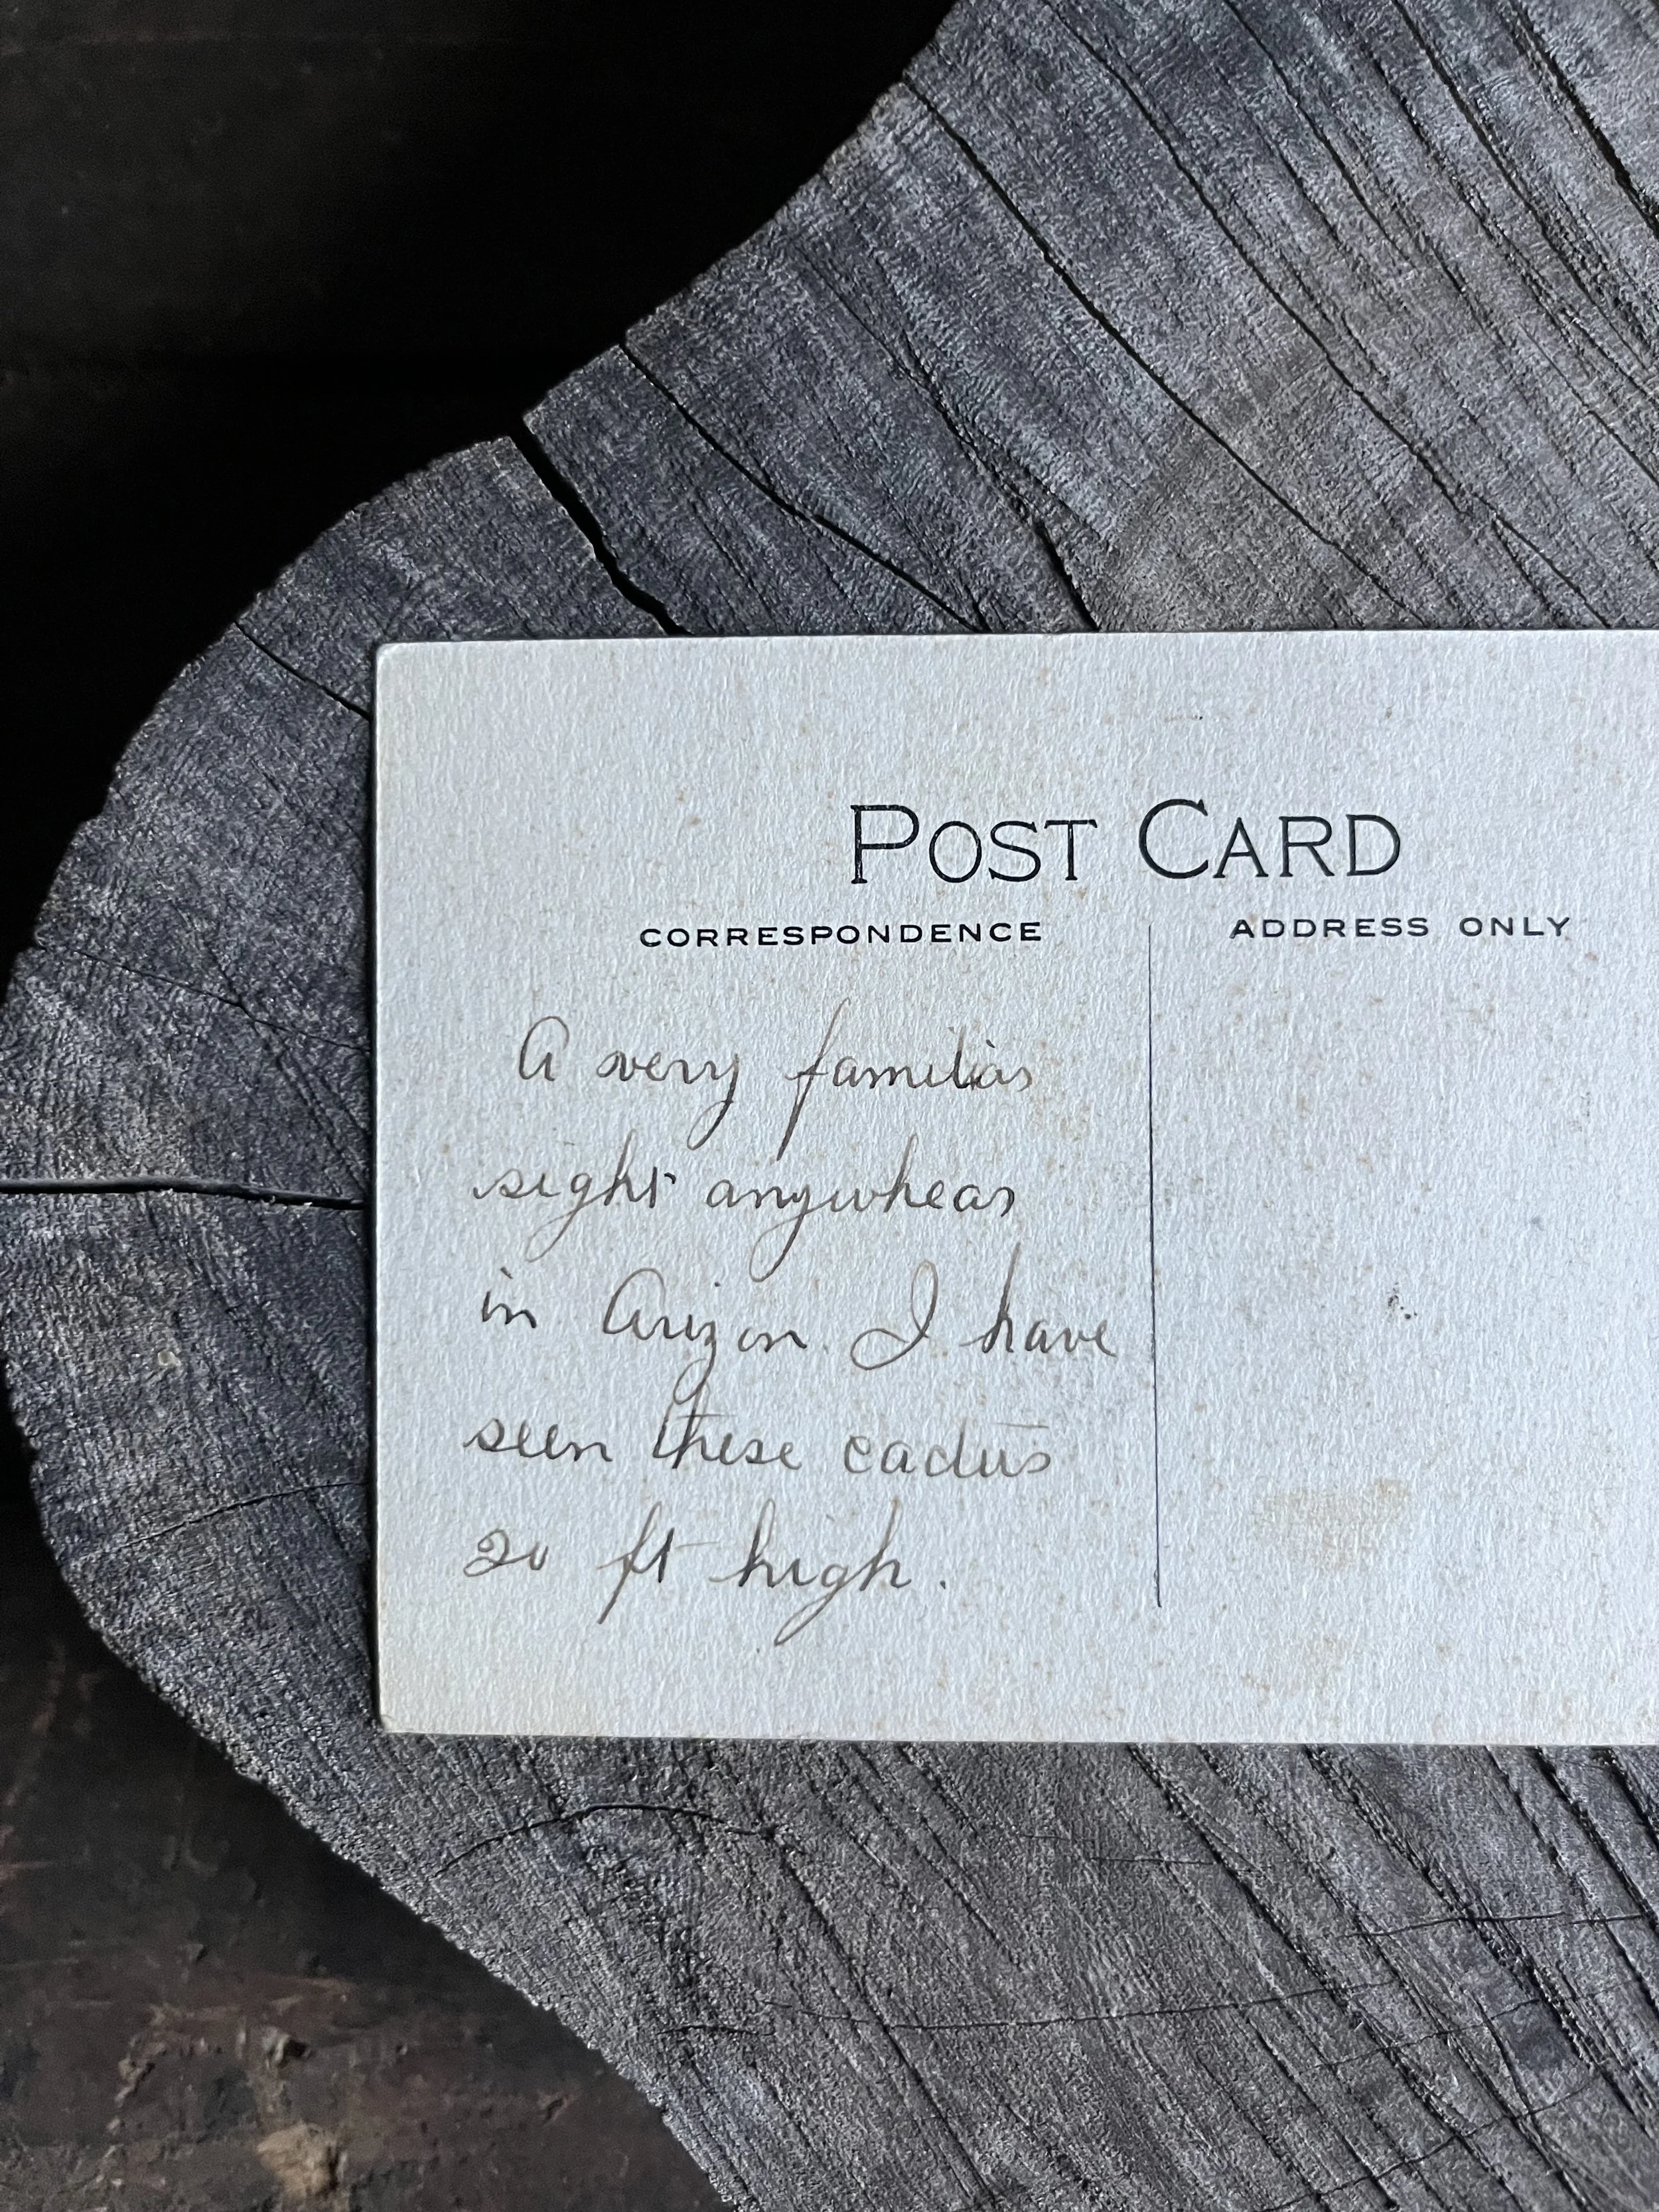 POST CARD
CORRESPONDENCE
ADDRESS ONLY
A very familiar
sight anywhear
in Arizon. I have
seen these cactus
20 ft high.